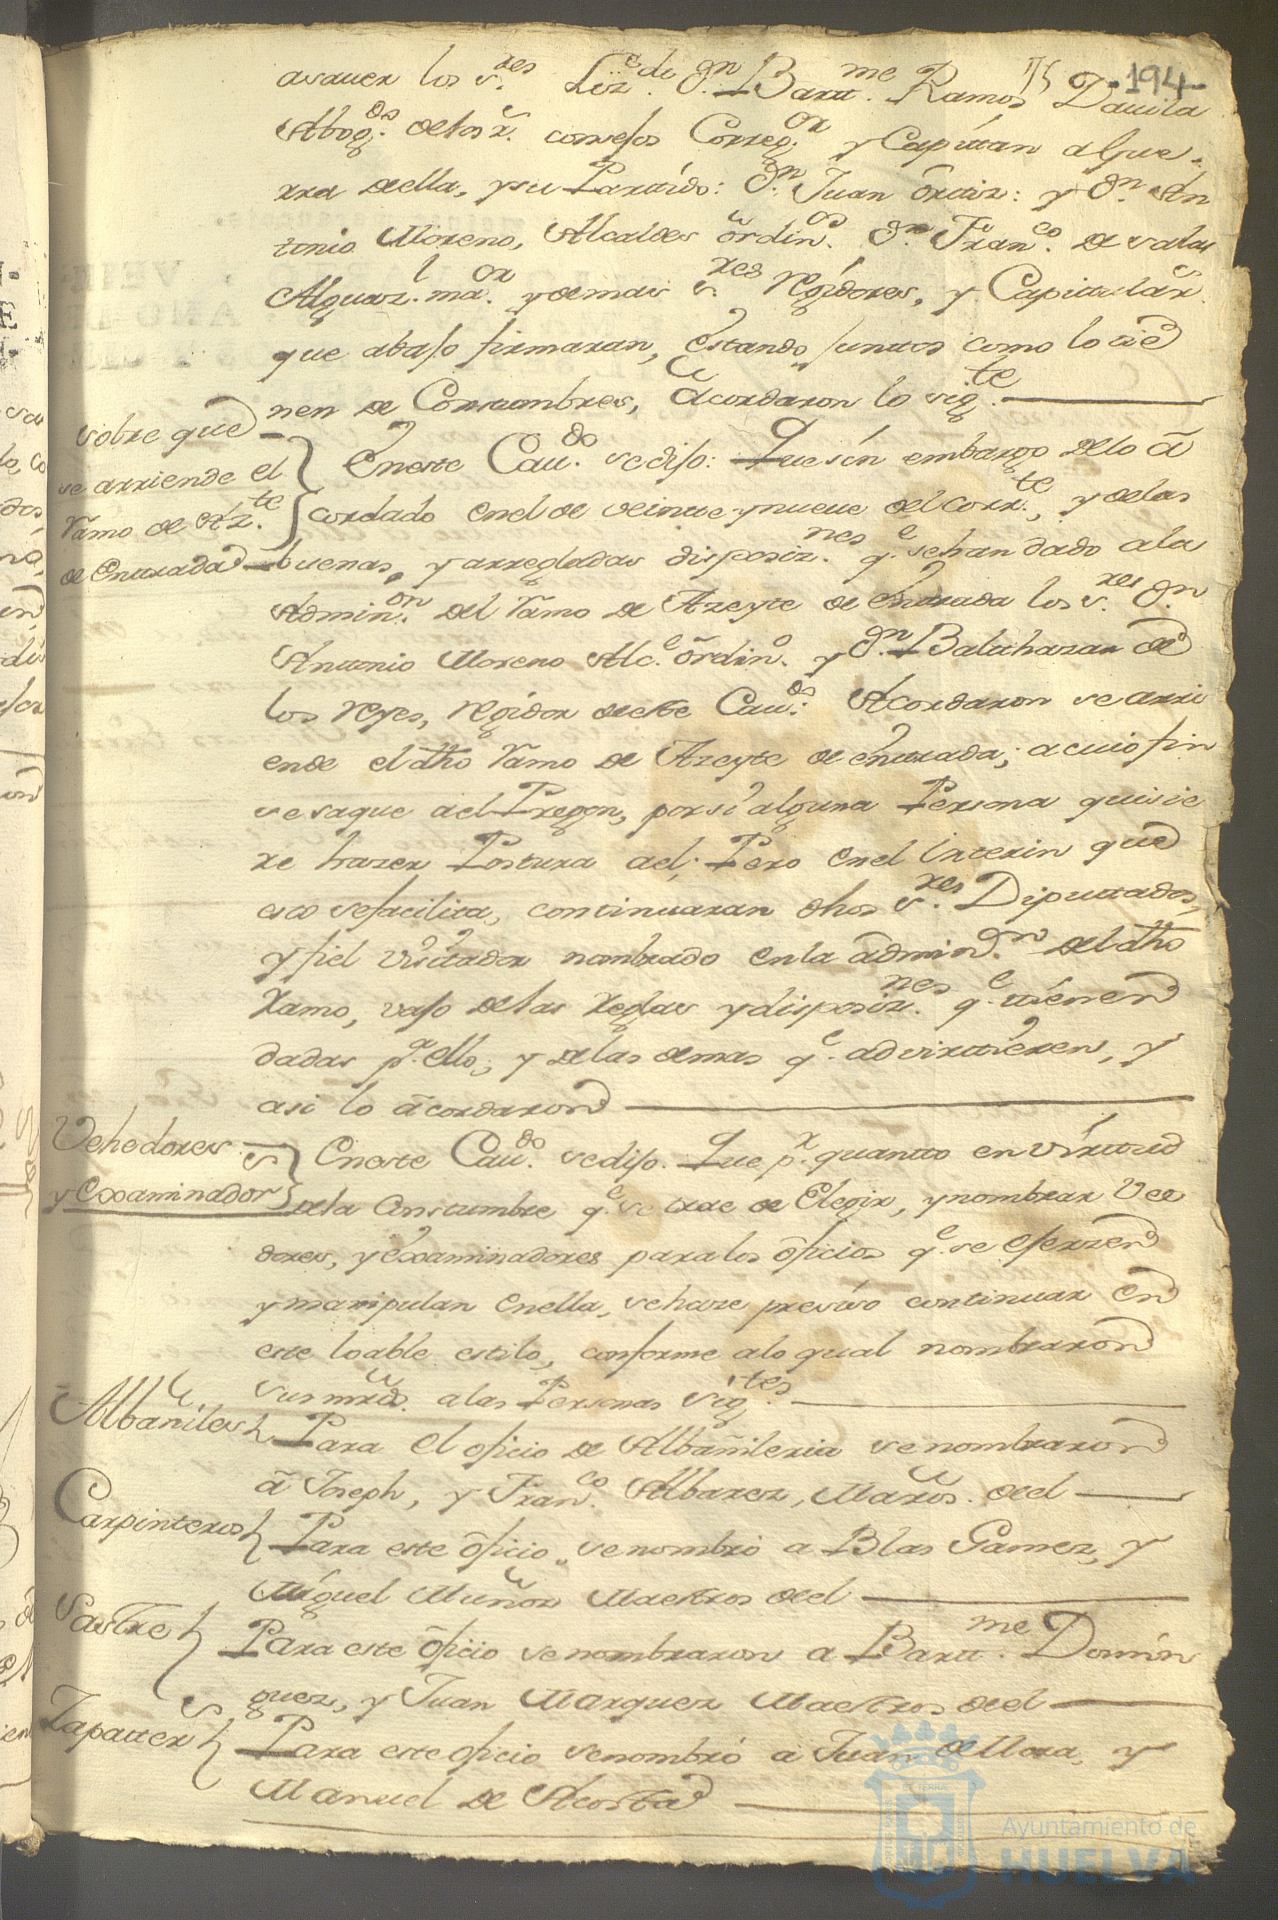 194
asauer los s.res Liz.do D.n Bartt.me Ramos Dauila
Abog.do delos R.s consejos Correg.or y Capitan aGue-
rra della, ysu Partido: D.n Juan Ortiz: y D.n An
tonio Moreno, Alcaldes ordin.os D.n Fran.co de salas
Alguaz.l ma.or ydemas s.res Regidores, y Capitular.s
que abajo firmaran, Estando juntos como lo tie
nen de Constumbres, acordaron lo sig.te
sobre que
se arriende el
Ramo de Az.te
de Entrada
Eneste Cau.do sedijo: Que sin embargo delo a
cordado enel de veinte ynueue del corr.te, y delas
buenas, y arregladas disposiz.nes q.e sehan dado ala
Admin.on del Ramo de Azeyte de Entrada los s.res D.n
Antonio Moreno Alc.e ordin.o y D.n Balthazar de
los Reyes, Regidor deeste Cau.do Acordaron se arri
ende el dho Ramo de Azeyte de entrada; a cuio fin
sesaque ael Pregon, por si alguna Persona quisie
re hazer Postura ael; Pero enel interin que
esto sefacilita, continuaran dhos s.res Diputtados,
y fiel Visitador nombrado enla admin.on del dho
Ramo, vajo delas reglas ydisposiz.nes q.e tienen
dadas p.a ello; y delas demas q.e advirttieren, y
asi lo acordaron
Vehedores
y Examinador.s
Eneste Cau.do sedijo. Que p.r quantto en virtud
dela Constumbre q.e se trae de Elegir, ynombrar Vee
dores, y Examinadores para los oficios q.e se ejerzen
y manipulan enella, sehaze preciso continuar en
este loable estilo, conforme alo qual nombraron
sus mrds. alas Personas sig.tes
Albañiles
Para el oficio de Albañileria senombraron
a Joseph, y Fran.co Albarez, Maros. del
Carpinteros
Para este oficio senombró a Blas Gamez, y
Miguel Muñoz Maestros del
Sastres
Para este oficio senombraron a Bartt.me Domin
guez, y Juan Marquez Maestros del
Zapatter.s
Para este oficio senombró a Juan deMora, y
Manuel de Acosta
Ayuntamiento de
HUELVA